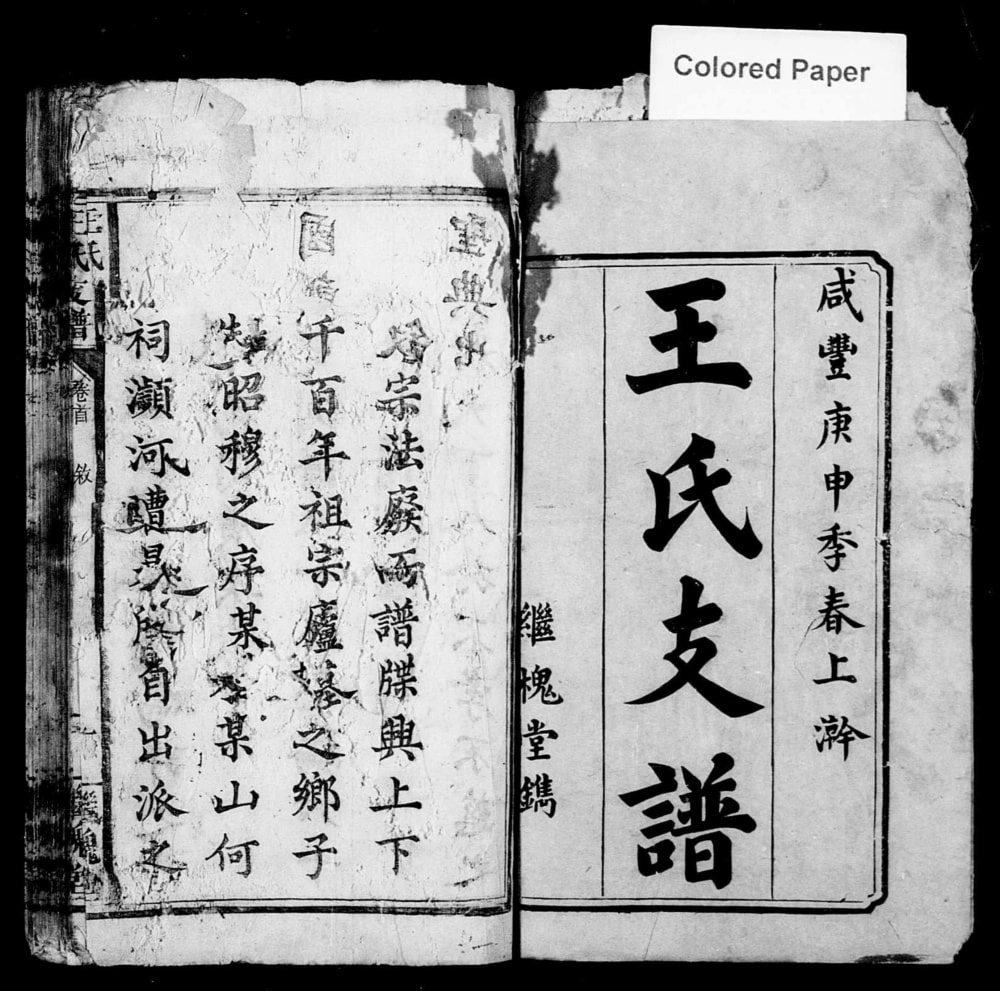 Colored Paper
咸豐庚申季春上澣
王氏支譜
繼槐堂鐫
宗法廢而譜牒興上下
千百年祖宗廬墓之鄉子
昭穆之序某某山何
祠瀕河遭自出派之
王氏支譜
卷首
敘
繼槐堂